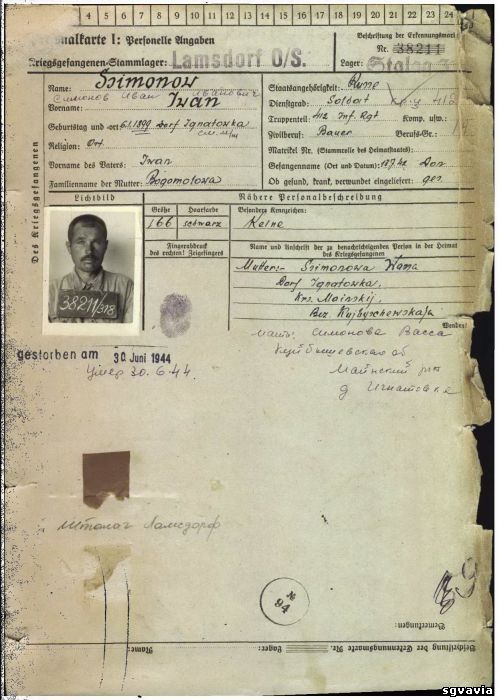 1 2 3 4 5 6 7 8 9 10 11 12 13 14 15 16 17 18 19 20 21 22 23 24
Personalkarte I: Personelle Angaben
Kriegsgefangenen-Stammlager: Lamsdorf O/S.
Beschriftung der Erkennungsmarke
Nr. 38211
Lager: Stalag
Des Kriegsgefangenen
Name: Ssimonow
Симонов Иван Иванович
Vorname: Iwan
Geburtstag und -ort 6.1.1899 Dorf Ignatowka
Religion: Ort.
Vorname des Vaters: Iwan
Familienname der Mutter: Bogomolowa
Staatsangehörigkeit: Russe
Dienstgrad: Soldat
Truppenteil: 412 Inf. Rgt Komp. usw.:
Zivilberuf: Bauer Berufs-Gr.:
Matrikel Nr. (Stammrolle des Heimatstaates):
Gefangennahme (Ort und Datum): 17.7.42 Don
Ob gesund, krank, verwundet eingeliefert: ges.
Lichtbild
Nähere Personalbeschreibung
Größe Haarfarbe Besondere Kennzeichen:
166 schwarz Keine
Fingerabdruck
des rechten! Zeigefingers
Name und Anschrift der zu benachrichtigenden Person in der Heimat
des Kriegsgefangenen
Mutter:- Ssimonowa Wassa
Dorf Ignatowka,
Krs. Mainskij,
Bez Kujbyschewskaja
38211/318
Wenden!
мать: Симонова Васса
Куйбышевская об
Майнский р-н
д Игнатовка
gestorben am 30. Juni 1944
Умер 30.6.44.
Шталаг Ламсдорф
№
94
Bemerkungen:
Name:
Beschriftung der Erkennungsmarke Nr.
Lager:
sgvavia